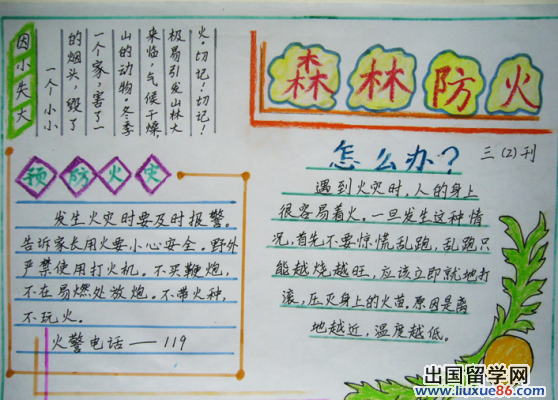 森林防火
三(2)刊
因小失大
一个小小
的烟头,毁了
一个家,害了一
山的动物。冬季
来临,气候干燥,
极易引发山林大
火,切记!切记!
预防火灾
发生火灾时要及时报警。
告诉家长用火要小心安全。野外
严禁使用打火机。不买鞭炮,
不在易燃处放炮。不带火种,
不玩火。
火警电话——119
怎么办?
遇到火灾时,人的身上
很容易着火。一旦发生这种情
况,首先不要惊慌乱跑,乱跑只
能越烧越旺,应该立即就地打
滚,压灭身上的火苗。原因是离
地越近,温度越低。
出国留学网
www.liuxue86.com